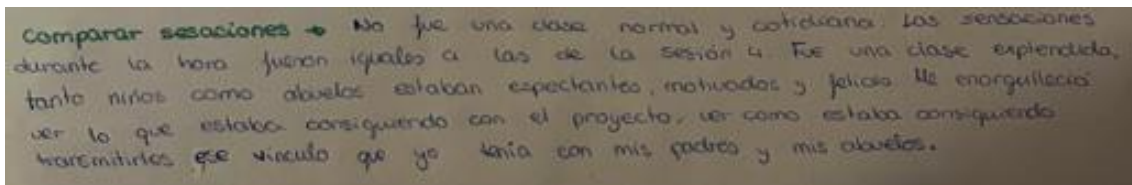 comparar sesaciones → No fue una clase normal y cotidiana. Las sensaciones
durante la hora fueron iguales a las de la sesión 4. Fue una clase esplendida,
tanto niños como abuelos estaban espectantes, motivados y felices. Me enorgullecia
ver lo que estaba consiguiendo con el proyecto, ver como estaba consiguiendo
transmitirles ese vinculo que yo tenia con mis padres y mis abuelos.